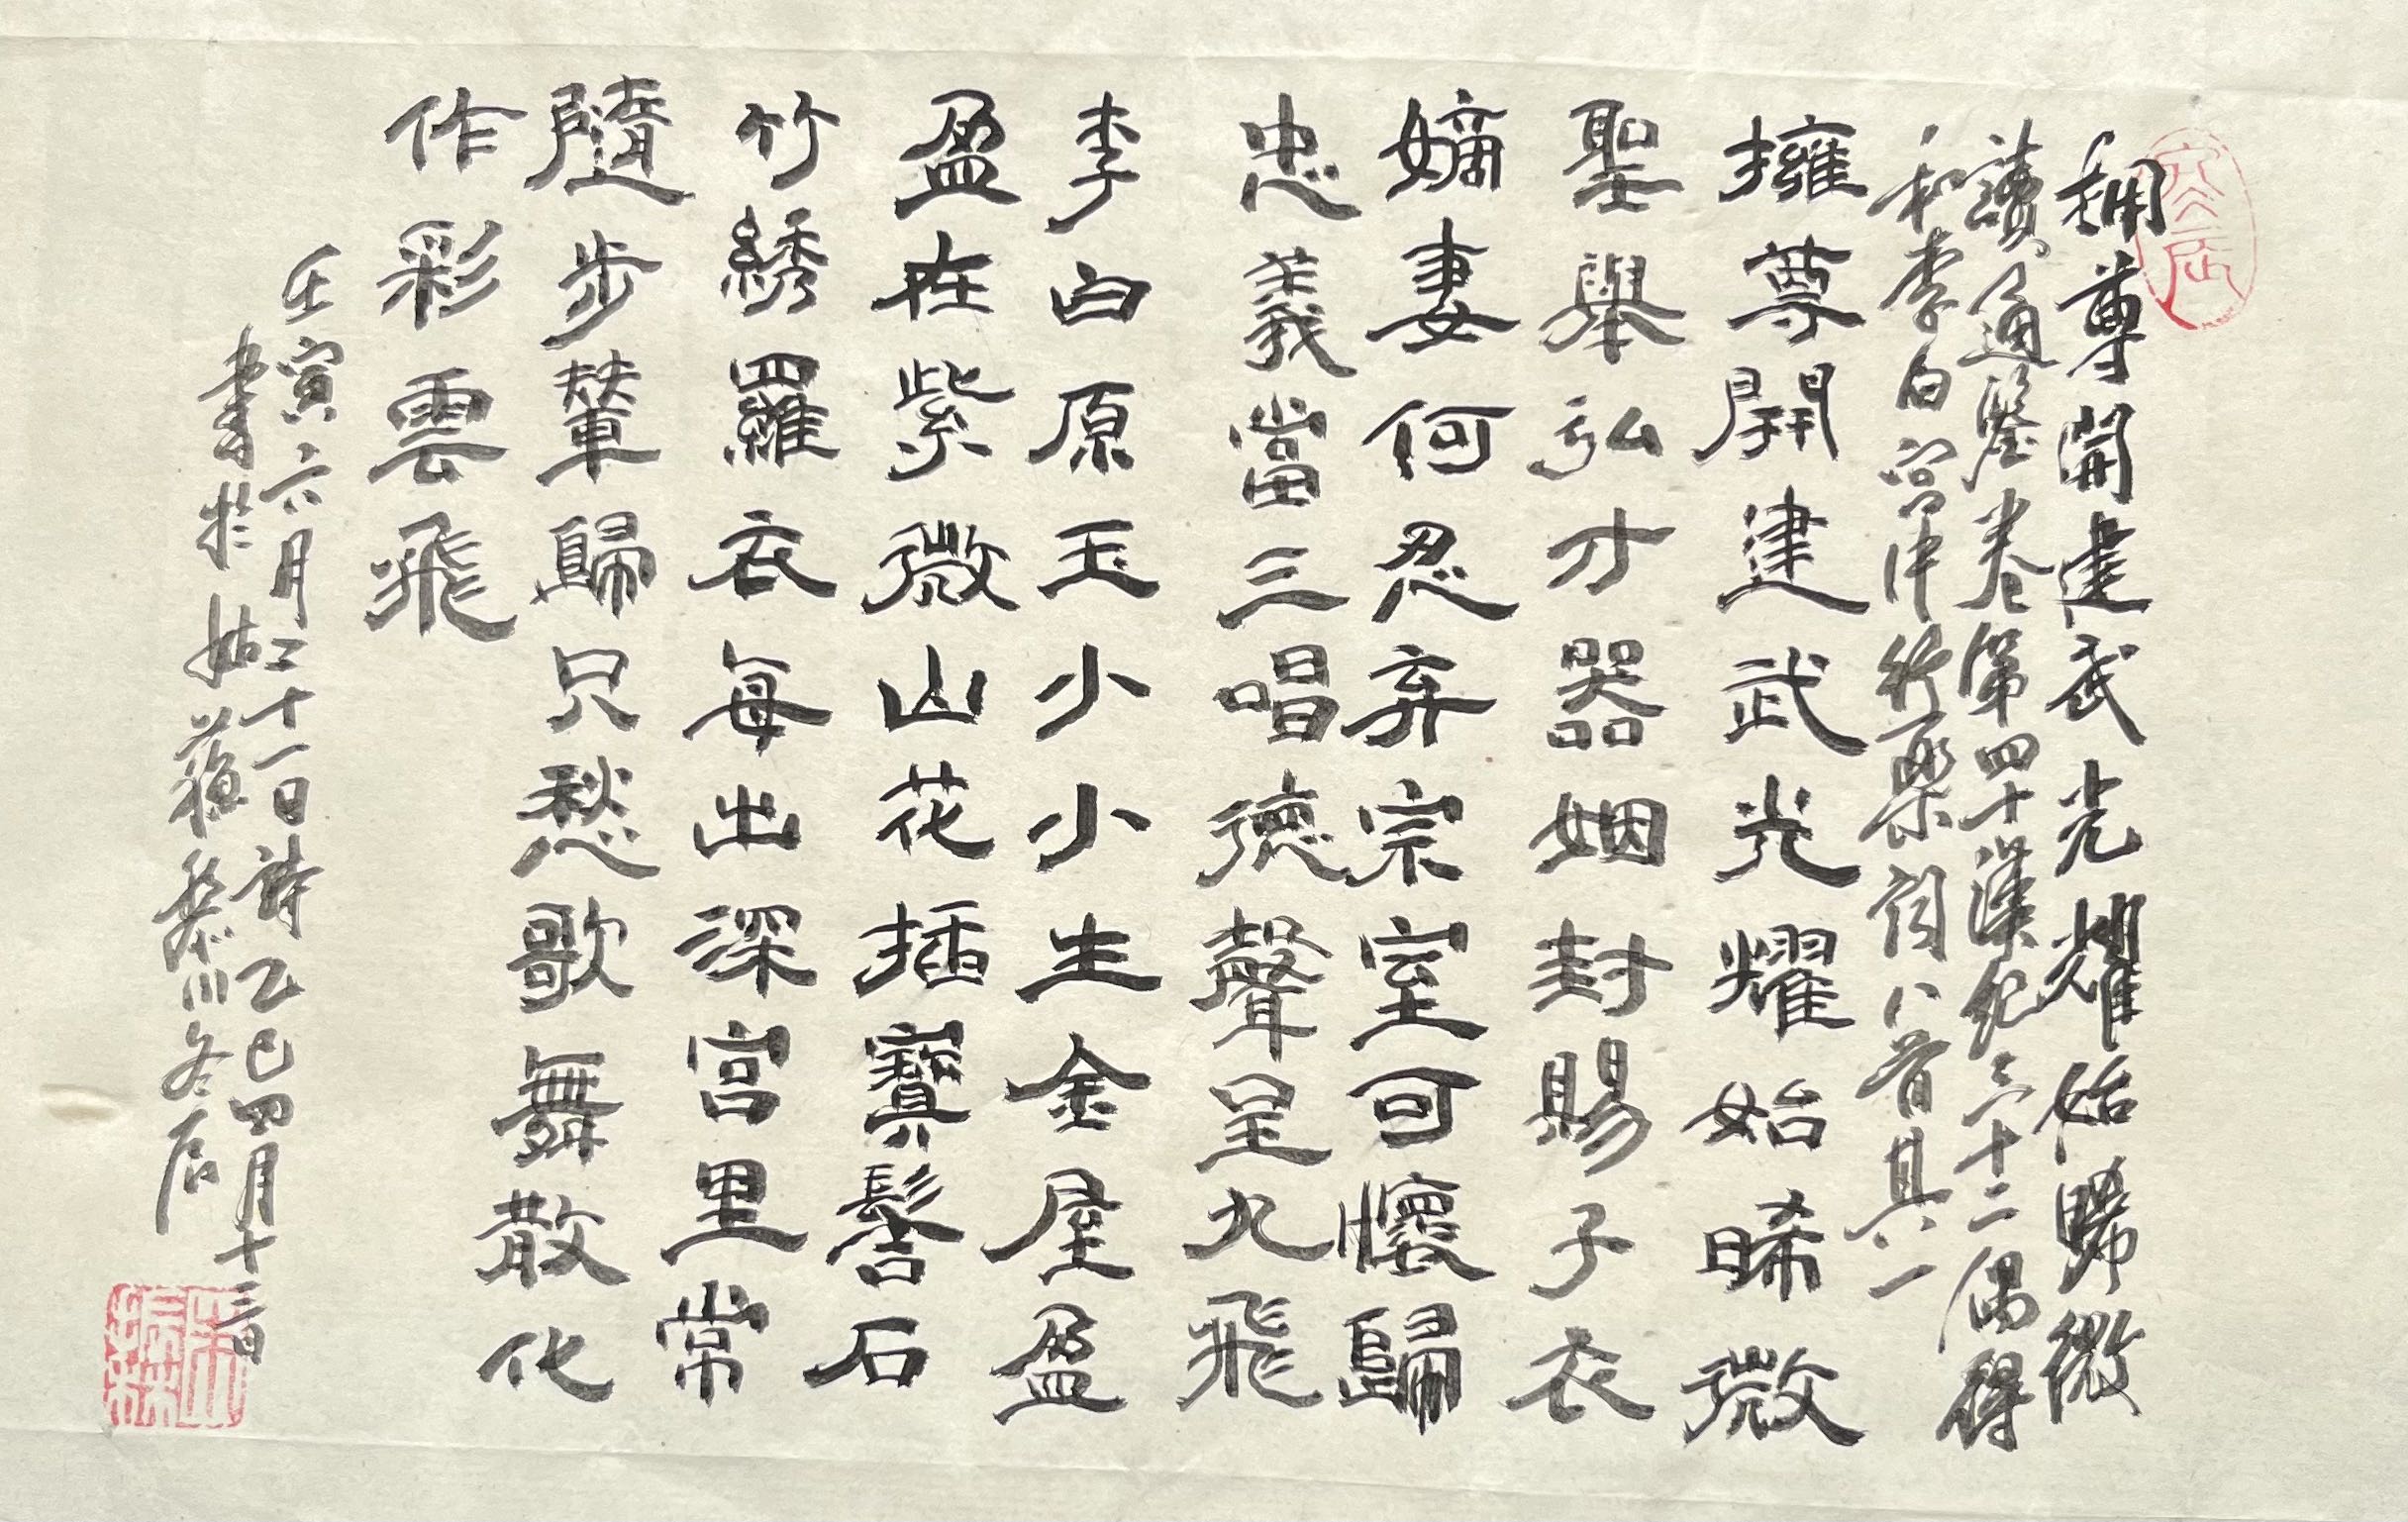 擁尊開建武光耀始晞微
讀通鑒卷第四十漢紀三十二偶得
和李白宮中行樂詞八首其一
擁尊開建武光耀始晞微
聖舉弘才器姻封賜子衣
嫡妻何忍弃宗室可懷歸
忠義當三唱德聲呈九飛
李白原玉小小生金屋盈
盈在紫微山花插寶髻石
竹綉羅衣每出深宮里常
隨步輦歸只愁歌舞散化
作彩雲飛
壬寅六月二十一日詩乙巳四月十三日
書於姑蘇黎川冬居